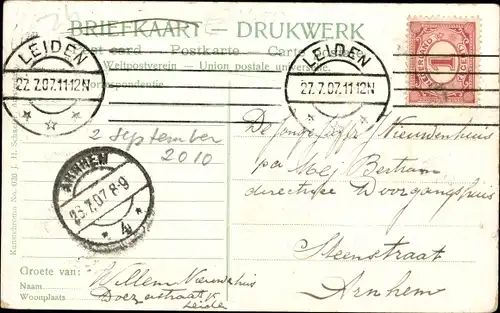 BRIEFKAART — DRUKWERK
Post card — Postkarte — Carte postale
Weltpostverein — Union postale universelle.
Correspondentie.
LEIDEN
27.7.07.11-12N
LEIDEN
27.7.07.11-12N
NEDERLAND
1
2 September
2010
ARNHEM
28.7.07 8-9
4
De Jonge Juffr. Nieuwenhuis
pa Mej Bertram
directrice Doorgangshuis
Steenstraat
Arnhem
Groete van:
Naam
Woonplaats
Willem Nieuwenhuis
Leiden